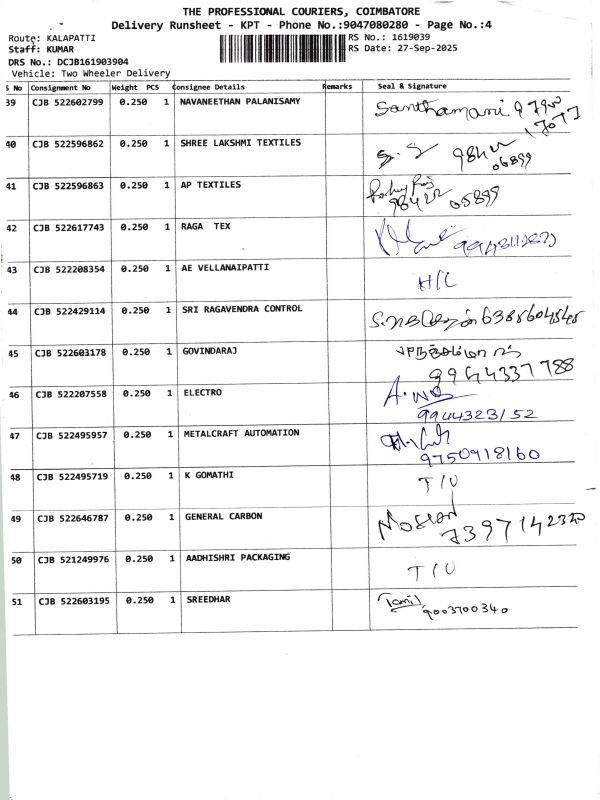 THE PROFESSIONAL COURIERS, COIMBATORE
Delivery Runsheet - KPT - Phone No.:9047080280 - Page No.:4
Route: KALAPATTI
RS No.: 1619039
Staff: KUMAR
RS Date: 27-Sep-2025
DRS No.: DCJB161903904
Vehicle: Two Wheeler Delivery
S No Consignment No Weight PCS Consignee Details Remarks Seal & Signature
39 CJB 522602799 0.250 1 NAVANEETHAN PALANISAMY Santhamani
40 CJB 522596862 0.250 1 SHREE LAKSHMI TEXTILES
06899
41 CJB 522596863 0.250 1 AP TEXTILES
98422 05899
42 CJB 522617743 0.250 1 RAGA TEX
43 CJB 522208354 0.250 1 AE VELLANAIPATTI H/C
44 CJB 522429114 0.250 1 SRI RAGAVENDRA CONTROL
45 CJB 522603178 0.250 1 GOVINDARAJ
9944337788
46 CJB 522207558 0.250 1 ELECTRO
9944323152
47 CJB 522495957 0.250 1 METALCRAFT AUTOMATION
9750918160
48 CJB 522495719 0.250 1 K GOMATHI T/U
49 CJB 522646787 0.250 1 GENERAL CARBON
7397142320
50 CJB 521249976 0.250 1 AADHISHRI PACKAGING T/U
51 CJB 522603195 0.250 1 SREEDHAR Tamil
9003700340